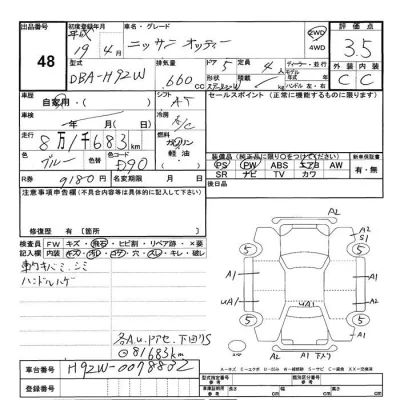 出品番号
48
初度登録年月
平成
19年 4月
車名・グレード
ニッサン オッティー
2WD
4WD
評価点
3.5
型式
DBA-H92W
排気量
660 CC
ドア
5
形状
定員
4人
積載
kg
ディーラー・並行
モデル年式
ハンドル 左・右
外装
内装
C
C
車歴
自家用・
シフト
AT
セールスポイント (正常に機能するものに限ります)
車検
年(月)日
冷房
A/C
走行
8万1千683km
燃料
ガソリン
軽油
色
ブルー
色替
色コード
D90
装備品 (純正品に限り○をつけてください)
PS PW ABS エアB AW
SR ナビ TV カワ
新車保証書
有・無
R券
9180円
名変期限
月 日
後日品
注意事項申告欄(不具合内容等は具体的に記入して下さい)
修復歴 有 [箇所
検査員
記入欄
FW キズ・飛石・ヒビ割・リペア跡・×要
内装 キズ・汚レ・コゲ・穴・スレ・キレ・破レ
車内キバミ、シミ
ハンドルハゲ
各AU.ドアセ.下回りS
81683km
AL
A2
S1
5
5
A1
A1
UA1
UA1
A1
5
5
A2
AL A1
車台番号
H92W-0078832
登録番号
型式指定番号
類別区分番号
参考
長さ
cm
幅
cm
高さ
cm